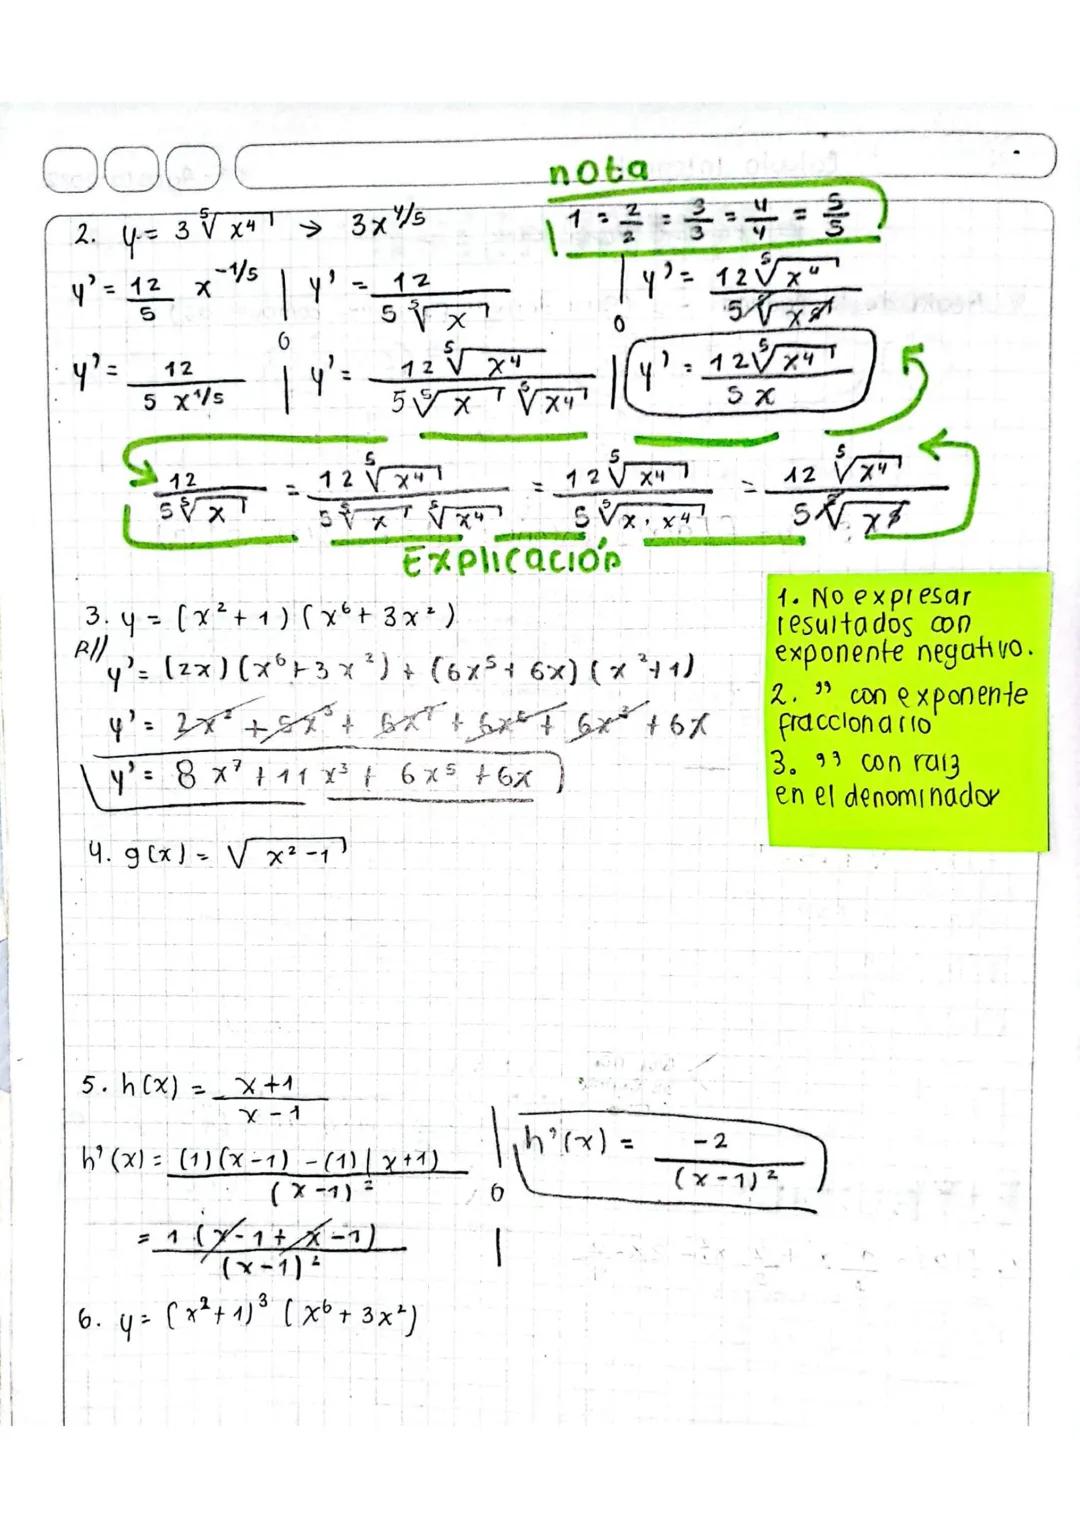 nota
1 = 2/2 = 3/3 = 4/4 = 5/5
2. y = 3 ⁵√x⁴ → 3x^4/5
y' = 12/5 x^-1/5 | y' = 12 / 5 ⁵√x | y' = 12 ⁵√x⁴ / 5 ⁵√x⁵
y' = 12 / 5 x^1/5 | y' = 12 ⁵√x⁴ / 5 ⁵√x ⁵√x⁴ | y' = 12 ⁵√x⁴ / 5x
12 / 5 ⁵√x = 12 ⁵√x⁴ / 5 ⁵√x ⁵√x⁴ = 12 ⁵√x⁴ / 5 ⁵√x · x⁴ = 12 ⁵√x⁴ / 5 ⁵√x⁵
Explicación
3. y = (x² + 1) (x⁶ + 3x²)
R// y' = (2x) (x⁶ + 3x²) + (6x⁵ + 6x) (x² + 1)
y' = + 6x
y' = 8x⁷ + 11x³ + 6x⁵ + 6x
1. No expresar
resultados con
exponente negativo.
2. " con exponente
fraccionario
3. " con raiz
en el denominador
4. g(x) = √x² - 1
5. h(x) = x + 1 / x - 1
h'(x) = (1)(x - 1) - (1)(x + 1) / (x - 1)² | h'(x) = -2 / (x - 1)²
= 1 (x - 1 + x - 1) / (x - 1)²
6. y = (x² + 1)³ (x⁶ + 3x²)